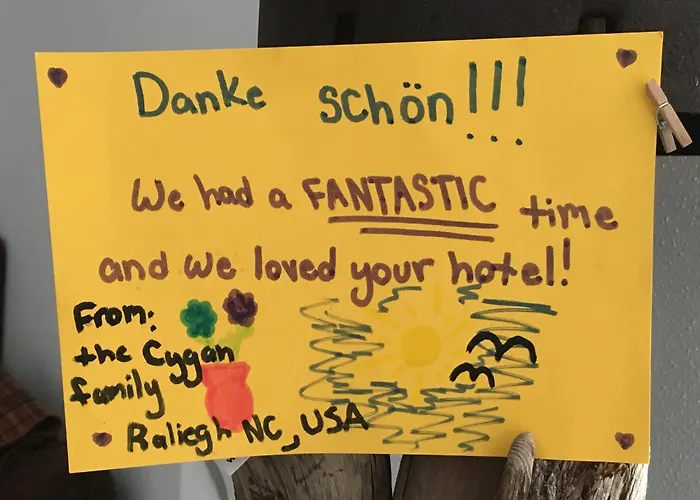 Danke schön!!!
We had a FANTASTIC time
and we loved your hotel!
From:
the Cygan
family
Raliegh NC, USA